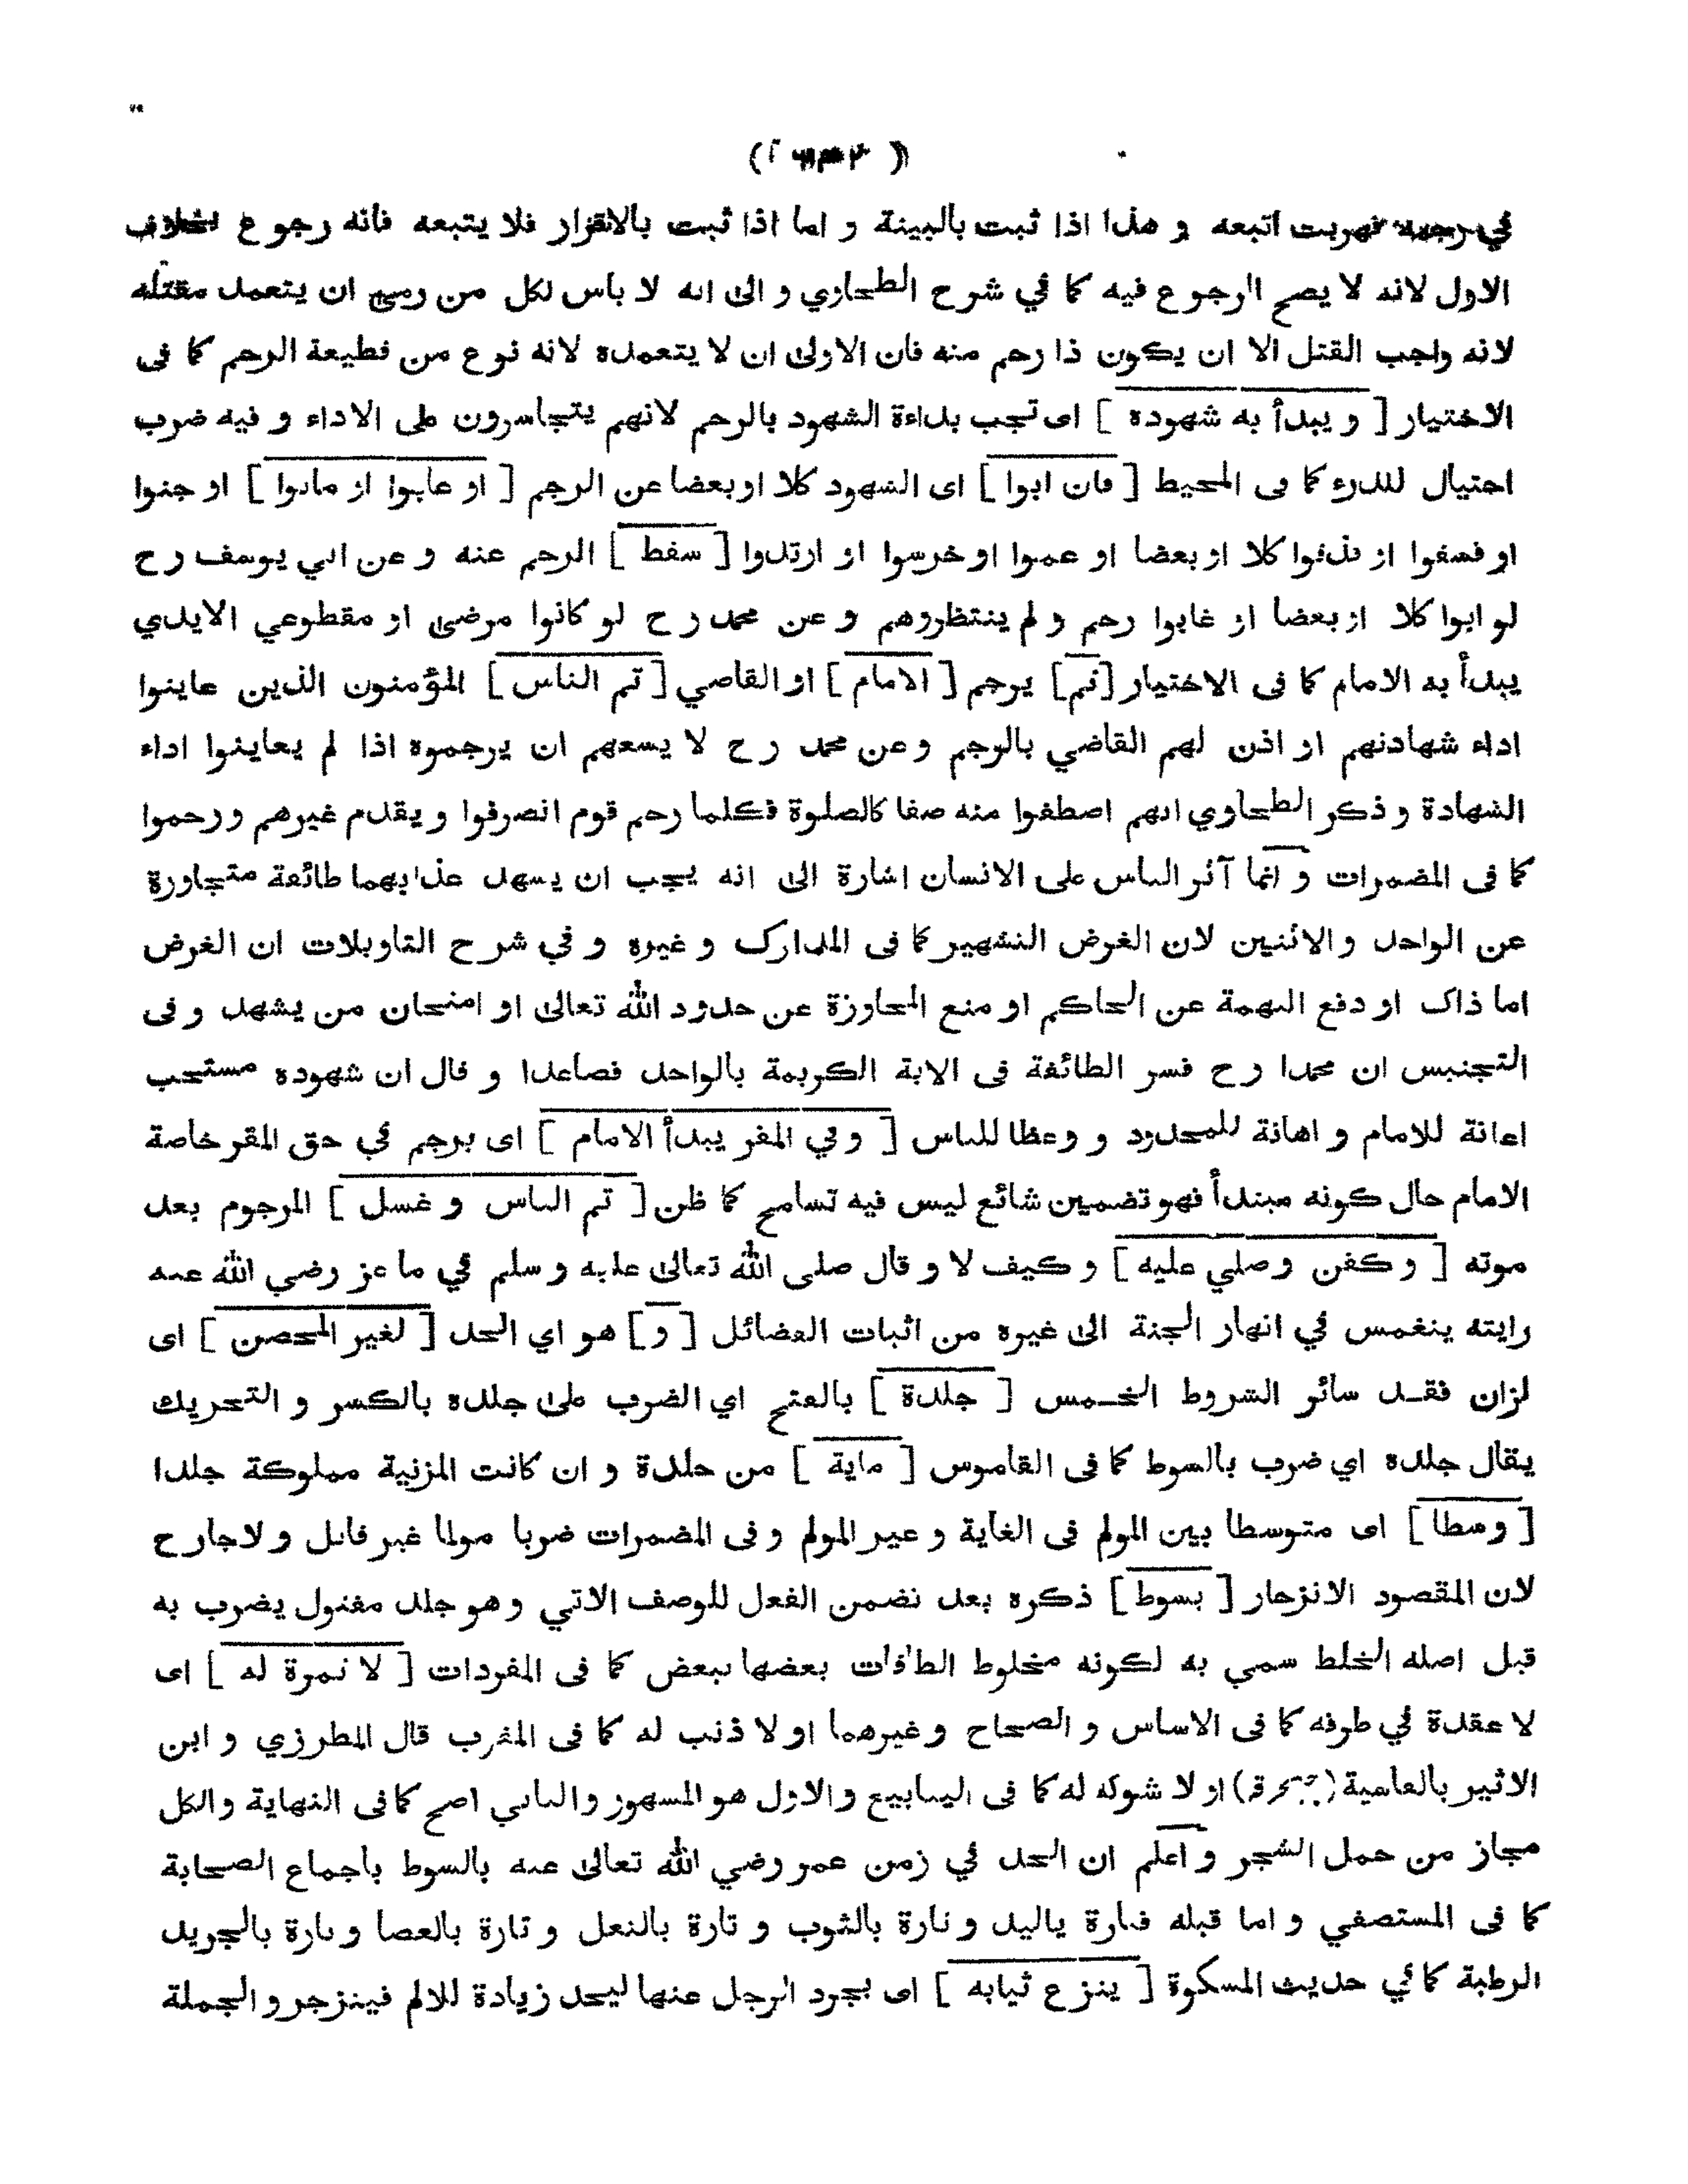 في رجمه فهربت اتبعه و هذا اذا ثبت بالبينة و اما اذا ثبت بالاقرار فلا يتبعه فانه رجوع بخلاف
الاول لانه لا يصح الرجوع فيه كما في شرح الطحاوي و الى انه لا باس لكل من رمى ان يتعمد مقتله
لانه واجب القتل الا ان يكون ذا رحم منه فان الاولى ان لا يتعمده لانه نوع من قطيعة الرحم كما فى
الاختيار [ و يبدأ به شهوده ] اى تجب بداءة الشهود بالرجم لانهم يتجاسرون على الاداء و فيه ضرب
احتيال للدرء كما فى المحيط [ فان ابوا ] اى الشهود كلا او بعضا عن الرجم [ او غابوا او ماتوا ] او جنوا
او فسقوا او قذفوا كلا او بعضا او عموا او خرسوا او ارتدوا [ سقط ] الرجم عنه و عن ابي يوسف رح
لو ابوا كلا او بعضا او غابوا رجم و لم ينتظروهم و عن محمد رح لو كانوا مرضى او مقطوعي الايدي
يبدأ به الامام كما فى الاختيار [ثم] يرجم [ الامام ] او القاضي [ ثم الناس ] المؤمنون الذين عاينوا
اداء شهادتهم او اذن لهم القاضي بالرجم و عن محمد رح لا يسعهم ان يرجموه اذا لم يعاينوا اداء
الشهادة و ذكر الطحاوي انهم اصطفوا منه صفا كالصلوة فكلما رجم قوم انصرفوا و يقدم غيرهم ورجموا
كما فى المضمرات و انما آثر الناس على الانسان اشارة الى انه يجب ان يشهد عذابهما طائفة متجاوزة
عن الواحد والاثنين لان الغرض التشهير كما فى المدارك و غيره و في شرح التاويلات ان الغرض
اما ذاك او دفع التهمة عن الحاكم او منع المجاوزة عن حدود الله تعالى او امتحان من يشهد و فى
التجنيس ان محمدا رح فسر الطائفة فى الاية الكريمة بالواحد فصاعدا و قال ان شهوده مستحب
اعانة للامام و اهانة للمحدود و وعظا للناس [ و في المقر يبدأ الامام ] اى يرجم في حق المقر خاصة
الامام حال كونه مبتدأ فهو تضمين شائع ليس فيه تسامح كما ظن [ ثم الناس و غسل ] المرجوم بعد
موته [ و كفن و صلي عليه ] و كيف لا و قال صلى الله تعالى عليه و سلم في ماعز رضي الله عنه
رايته ينغمس في انهار الجنة الى غيره من اثبات الفضائل [ و ] هو اي الحد [ لغير المحصن ] اى
لزان فقد سائر الشروط الخمس [ جلدة ] بالفتح اي الضرب على جلده بالكسر و التحريك
يقال جلده اي ضرب بالسوط كما فى القاموس [ ماية ] من جلدة و ان كانت المزنية مملوكة جلدا
[ وسطا ] اى متوسطا بين المولم فى الغاية و غير المولم و فى المضمرات ضربا مولما غير قاتل و لا جارح
لان المقصود الانزجار [ بسوط ] ذكره بعد تضمن الفعل للوصف الاتي و هو جلد مفتول يضرب به
قيل اصله الخلط سمي به لكونه مخلوط الطاقات بعضها ببعض كما فى المفردات [ لا ثمرة له ] اى
لا عقدة في طرفه كما فى الاساس و الصحاح و غيرهما او لا ذنب له كما فى المغرب قال المطرزي و ابن
الاثير بالعاسية او لا شوكه له كما فى الينابيع و الاول هو المشهور والثاني اصح كما فى النهاية والكل
مجاز من حمل الشجر و اعلم ان الحد في زمن عمر رضي الله تعالى عنه بالسوط باجماع الصحابة
كما فى المستصفي و اما قبله فتارة باليد و تارة بالثوب و تارة بالنعل و تارة بالعصا و تارة بالجريد
الرطبة كما في حديث المشكوة [ ينزع ثيابه ] اى يجرد الرجل عنها ليجد زيادة للالم فينزجر و الجملة